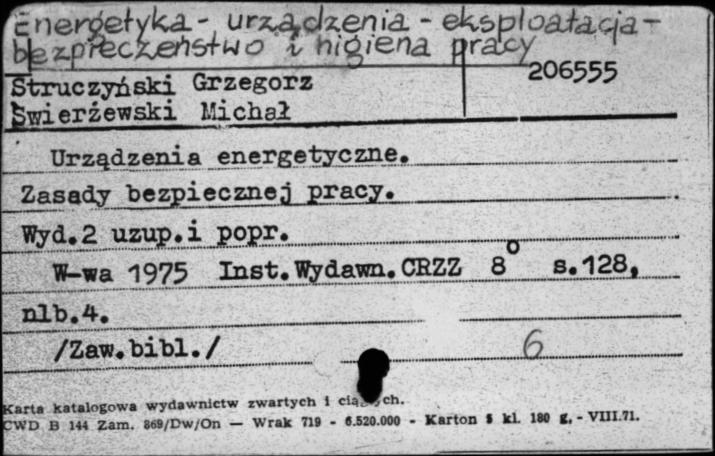 Energetyka - urządzenia - eksploatacja -
bezpieczeństwo i higiena pracy
206555
Struczyński Grzegorz
Swierżewski Michał
Urządzenia energetyczne.
Zasady bezpiecznej pracy.
Wyd.2 uzup.i popr.
W-wa 1975 Inst.Wydawn.CRZZ 8° s.128,
nlb.4.
/Zaw.bibl./ 6
Karta katalogowa wydawnictw zwartych i ciągłych.
CWD B 144 Zam. 869/Dw/On — Wrak 719 - 6.520.000 - Karton 5 kl. 180 g. - VIII.71.